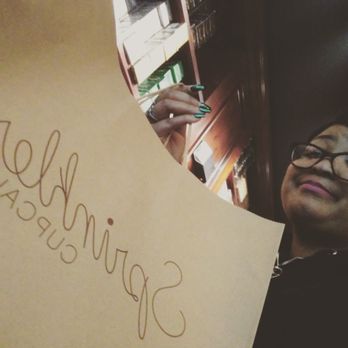 Sprinkles
CUPCA